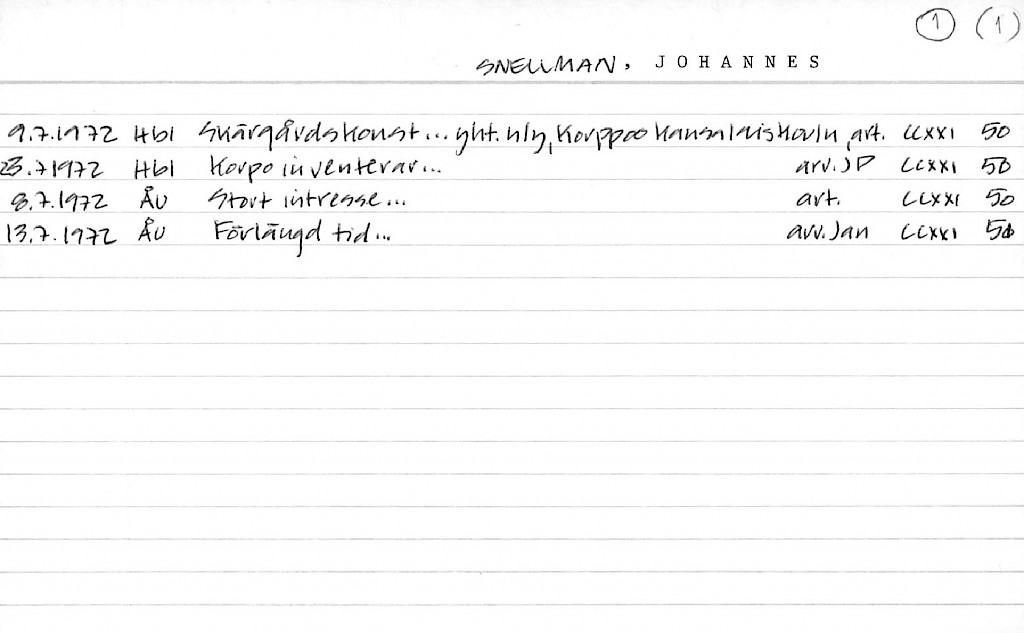 1 (1)
SNELLMAN, JOHANNES
9.7.1972 Hbl Skärgårdskonst... yht. nly, Korppoo kansalaiskouln, art. CCXXI 50
23.71972 Hbl Korpo inventerar... arv. JP CCXXI 50
8.7.1972 ÅU Stort intresse... art. CCXXI 50
13.7.1972 ÅU Förlängd tid... arv. Jan CCXXI 50